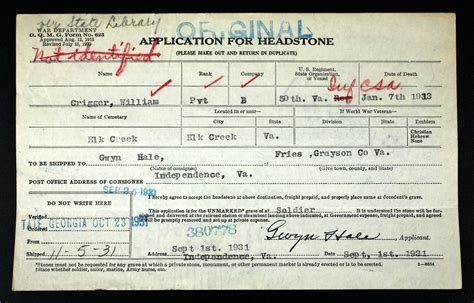 per State Library
ORIGINAL
WAR DEPARTMENT
O. Q. M. G. Form No. 623
Approved Aug. 12, 1915
Revised July 16, 1930
APPLICATION FOR HEADSTONE
(PLEASE MAKE OUT AND RETURN IN DUPLICATE)
Not identified
Name Rank Company U. S. Regiment, State Organization, or Vessel Date of Death
Inf CSA
Crigger, William Pvt B 50th. Va. Jan. 7th 1913
Name of Cemetery Located in or near— If World War Veteran—
City State Division Emblem
Christian
Hebrew
None
Elk Creek Elk Creek Va.
TO BE SHIPPED TO Gwyn Hale, Fries ,Grayson Co Va.
(Name of consignee)
POST OFFICE ADDRESS OF CONSIGNEE Independence, Va.
DO NOT WRITE HERE
I hereby agree to accept the headstone at above destination, freight prepaid, and properly place same at decedent's grave.
This application is for the UNMARKED* grave of a Soldier. It is understood the stone will be furnished and delivered at the railroad station or steamboat landing above indicated, at Government expense, freight prepaid, and removed and set up at private expense.
Ordered
Verified
TATE GEORGIA OCT 23 1931
Shipped
380778
11-5-31
Gwyn Hale
Sept 1st. 1931
Independence, Va. Sept, 1st. 1931
*Stones must not be requested for any grave which at private stone, monument, or other permanent marker is already erected or is to be erected.
State whether soldier, sailor, marine, Army nurse, etc.